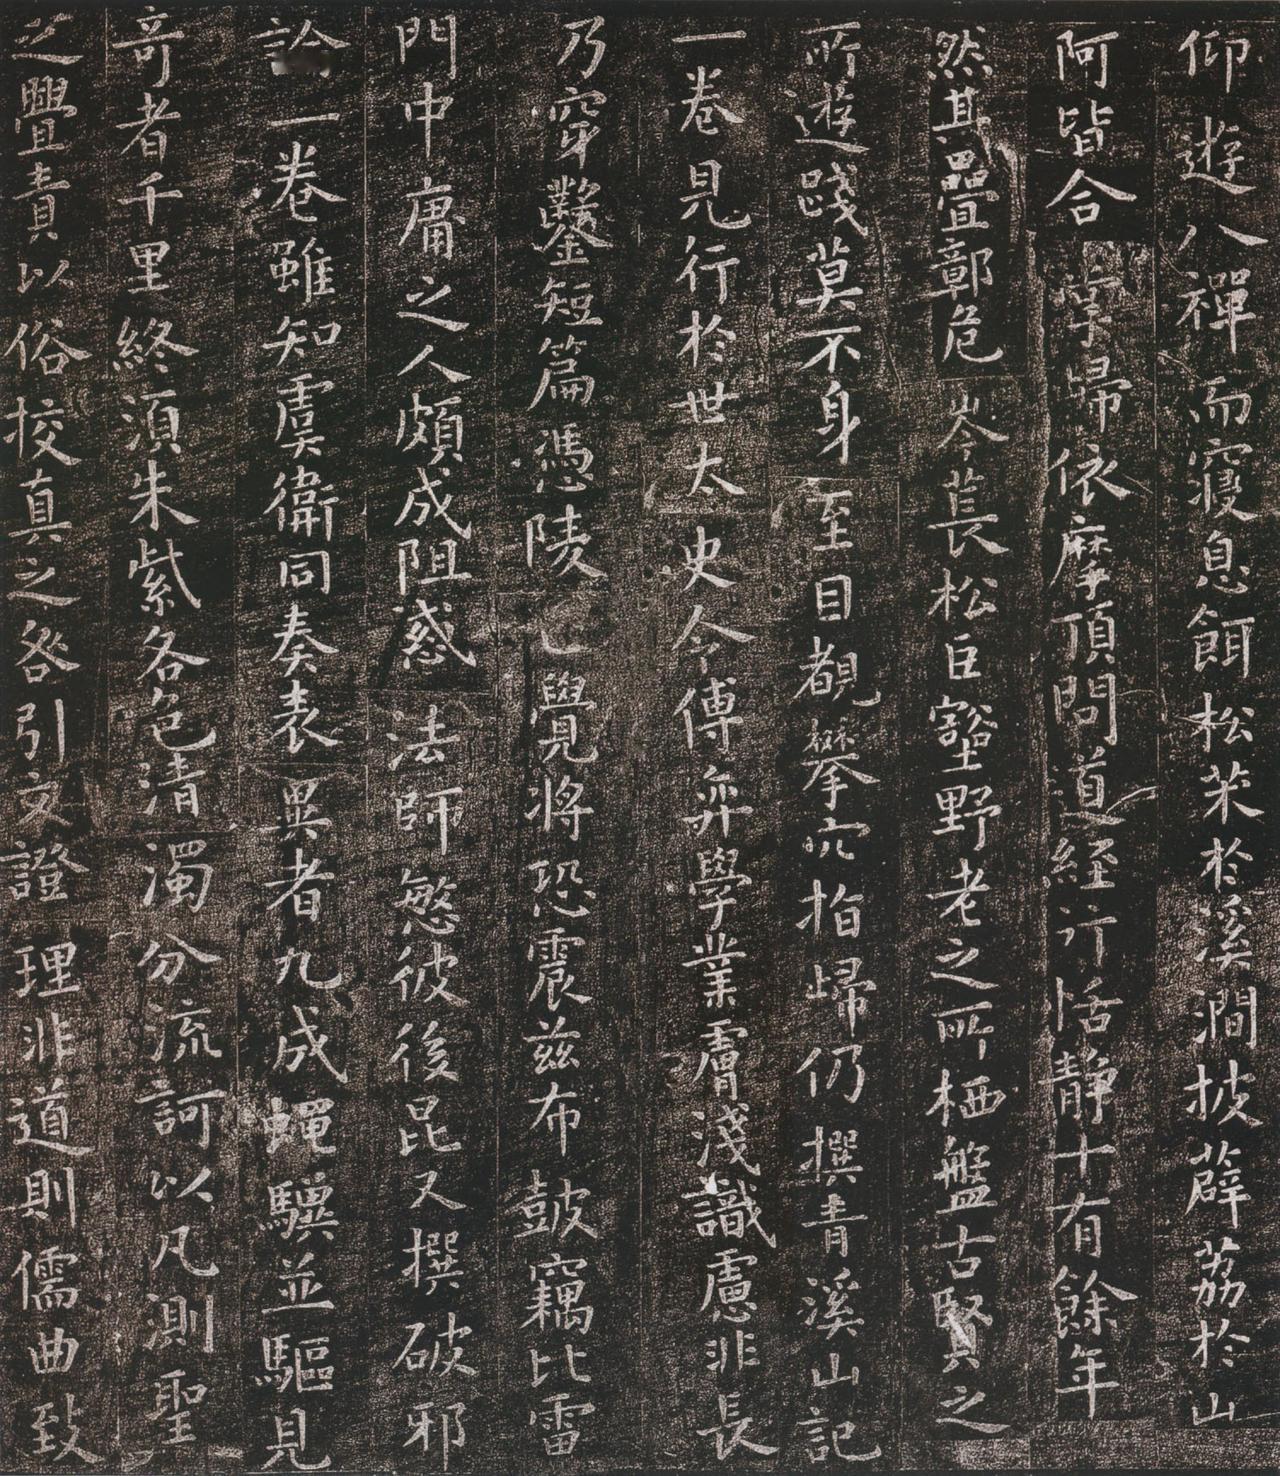 仰遊八禪而寢息餌松茱於溪澗披薜荔於山
阿皆合掌歸依摩頂問道經行恬靜十有餘年
然其疊鄣危岑萇松巨壑野老之所栖盤古賢之
所遊踐莫不身至目覩攀穴指歸仍撰青溪山記
一卷見行於世太史令傅弈學業膚淺識慮非長
乃穿鑿短篇憑陵正覺將恐震茲布皷竊比雷
門中庸之人頗成阻惑法師慜彼後昆又撰破邪
論一卷雖知虞衛同奏表異者九成蠅驥並驅見
奇者千里終湏朱紫各色清濁分流訶以凡測聖
之舋責以俗挍真之咎引文證理非道則儒曲致